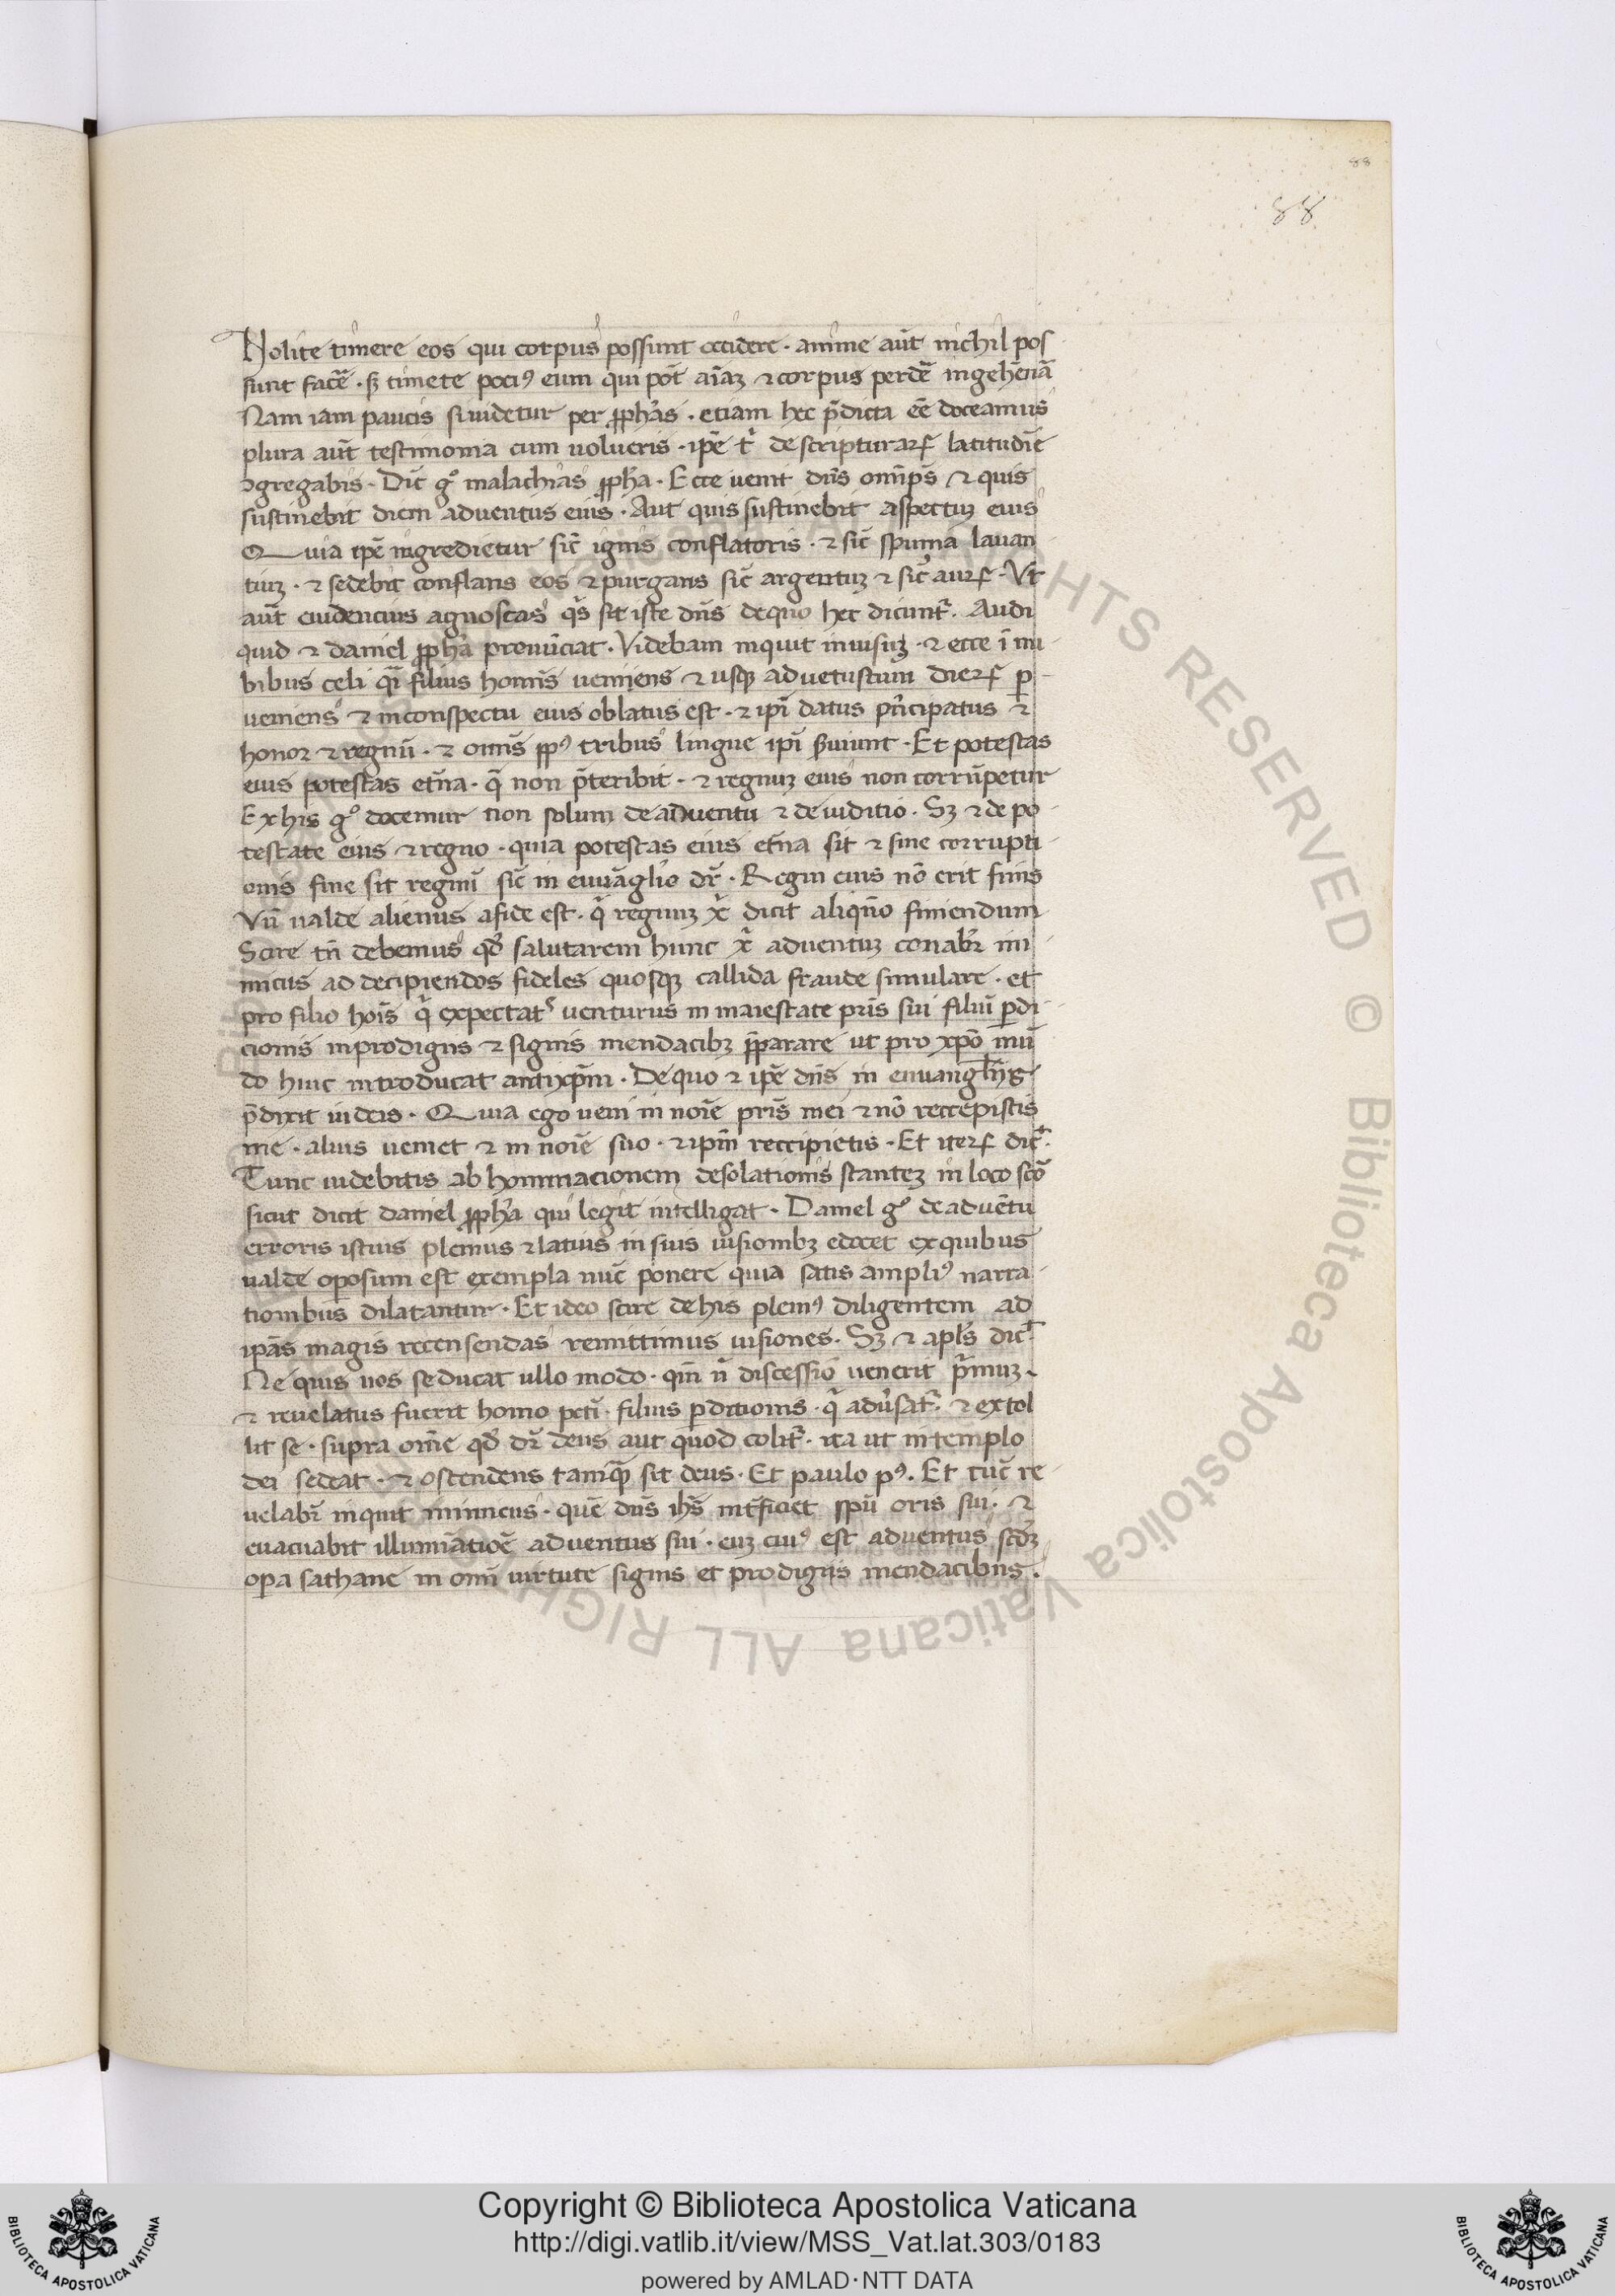 88
88
Nolite timere eos qui corpus possunt occidere · anime aut̄ nichil pos
sunt facē · sꝫ timete poci⁹ eum qui pōt aīaꝫ ⁊ corpus perdē ingehēnā
Nam iam paucis si videtur per ꝓph̄as · etiam hec p̄dicta eē doceamus
plura aut̄ testimonia cum volueris · ip̄e t͛ de scripturaꝝ latitudīe
ꝯgregabis · Dic̄ gͦ malachias ꝓph̄a · Ecce venit dn̄s omīps̄ ⁊ quis
sustinebit diem adventus eius · Aut quis sustinebit aspectuꝫ eius
Quia ip̄e ingredietur sic̄ ignis conflatoris · ⁊ sic̄ spuma lavan
tiuꝫ · ⁊ sedebit conflans eos ⁊ purgans sic̄ argentuꝫ ⁊ sic̄ auꝝ · Vt
aut̄ evidencius agnoscas qͥs sit iste dn̄s dequo hec dicunt᷑. Audi
quid ⁊ daniel ꝓph̄a prenūciat · Videbam inquit invisuꝫ · ⁊ ecce ī nu
bibus celi qͣi filius homīs veniens ⁊ usqꝫ advetustum dieꝝ ꝑ
veniens ⁊ inconspectu eius oblatus est · ⁊ ipī datus pͥncipatus ⁊
honor ⁊ regnū · ⁊ omīs ppl̄s tribus lingue ipī s̄viunt · Et potestas
eius potestas et̄na · q̄ non p̄teribit · ⁊ regnuꝫ eius non corrūpetur
Ex his gͦ docemur non solum de adventu ⁊ de iuditio · Sꝫ ⁊ de po
testate eius ⁊ regno · quia potestas eius et̄na sit ⁊ sine corrupti
onis fine sit regnū sic̄ in euuāglio dr̄ · Regni eius nō erit finis
Vn̄ valde alienus afide est · qͥ regnuꝫ xͥ dicit aliqn̄o finiendum
Scire tn̄ debemus qd̄ salutarem hunc xͥ adventuꝫ conabr̄ ini
micus ad decipiendos fideles quosqꝫ callida fraude simulare · et
pro filio hoīs qͥ expectat᷑ venturus in maiestate pr̄is sui filiū ꝑdi
cionis inprodigiis ⁊ signis mendacibꝫ p̄parare ut pro xp̄o mū
do hunc introducat antixp̄m · Dequo ⁊ ip̄e dn̄s in euuangliis
p̄dixit iudeis · Quia ego veni in noīe pr̄is mei ⁊ nō reccepistis
me · alius veniet ⁊ in noīe suo · ⁊ ipm̄ reccipietis · Et iteꝝ dic̄ͭ
Tunc videbitis ab hominacionem desolationis stanteꝫ in loco scō
sicut dicit daniel ꝓph̄a qui legit intelligat · Daniel gͦ de advētu
erroris istius plenius ⁊ latius in suis visionibꝫ edocet ex quibus
valde oꝑosum est exempla nūc ponere quia satis ampli⁹ narra
tionibus dilatantur · Et ideo scire de his pleni⁹ diligentem ad
ipās magis recensendas remittimus visiones · Sꝫ ⁊ apl̄s dic̄ͭ
Ne quis vos seducat ullo modo · qm̄ nͥ discessio venerit pͥmuꝫ ·
⁊ revelatus fuerit homo pctī · filius ꝑditionis · qͥ adv̄sat᷑ · ⁊ extol
lit se · supra ōme qd̄ dr̄ deus aut quod colit᷑ · ita ut in templo
dei sedeat · ⁊ ostendens tamqͣ sit deus · Et paulo p⁹ . Et tūc re
velabr̄ inquit inimicus · quē dn̄s ih̄s int̄ficiet spū oris sui · ⁊
evacuabit illumīatioē adventus sui · euꝫ cui⁹ est adventus scd̄ꝫ
oꝑa sathane in omī virtute signis et prodigiis mendacibus ·
Biblioteca Apostolica Vaticana ALL RIGHTS RESERVED ©
BIBLIOTECA APOSTOLICA VATICANA
Copyright © Biblioteca Apostolica Vaticana
http://digi.vatlib.it/view/MSS_Vat.lat.303/0183
powered by AMLAD·NTT DATA
BIBLIOTECA APOSTOLICA VATICANA